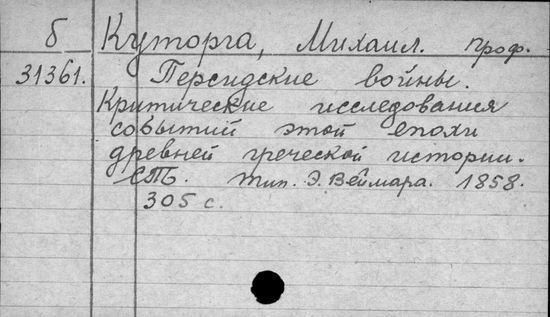 б Куторга, Михаил. проф.
31361. Персидские войны.
Критические исследования
событий этой епохи
древней греческой истории.
СПБ. тип. Э. Веймара. 1858.
305 с.